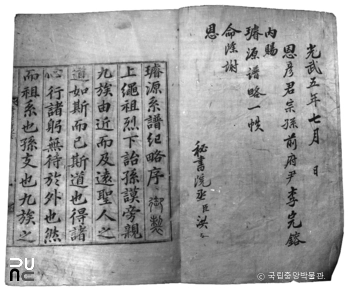 光武五年七月 日
恩彦君宗孫前府尹李完鎔
內賜
璿源譜略一帙
命除謝
恩
秘書院丞臣洪
璿源系譜紀略序 御製
上繩祖烈下詒孫謨旁親
九族由近而及遠聖人之
道如斯而已斯道也得諸
心行諸躬無待於外也然
而祖系也孫支也九族之
© 국립중앙박물관